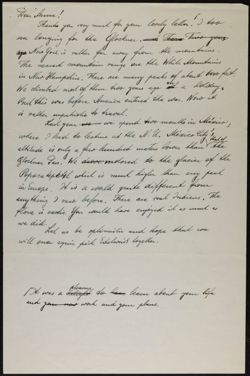 Dear Anna!
Thank you very much for your lovely letter! I too
am longing for the Glockner. Two years
ago New York is rather far away from the mountains.
The nearest mountain range are the White Mountains
in New Hampshire. There are many peaks of about feet.
We climbed most of them two years ago a holiday.
But this was before America entered the war. Now it
is rather unpatriotic to travel.
Last year we spent two months in Mexico,
where I had to lecture at the N. U. Mexico City's
altitude is only a few hundred meters lower than the
Glockner We motored to the glacier of the
Popocatepetl which is much higher than any peak
in Europe. It is a world quite different from
anything I saw before. There are real Indians. The
flora is exotic You would have enjoyed it as much as
we did.
Let us be optimistic and hope that we
will once again pick Edelweiss together.
It was a to learn about your life
and your work and your plans.